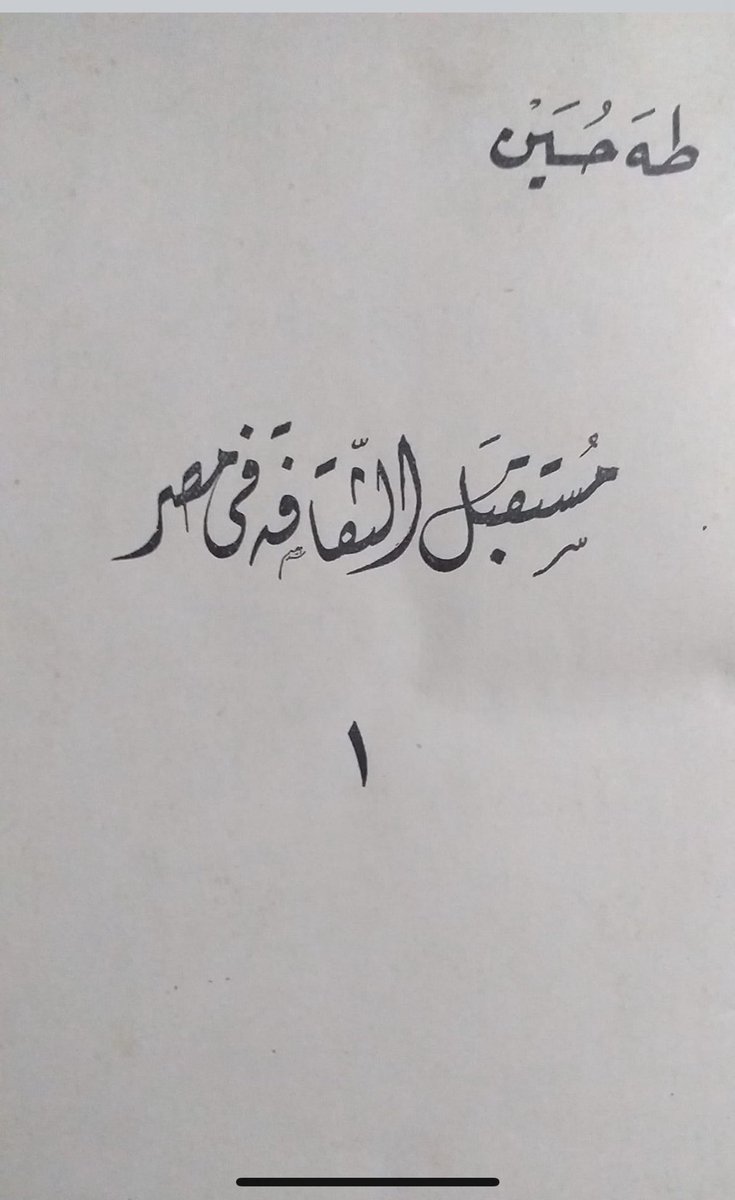 طه حُسَيْن
مُستقبَل الثّقافة فى مصر
١